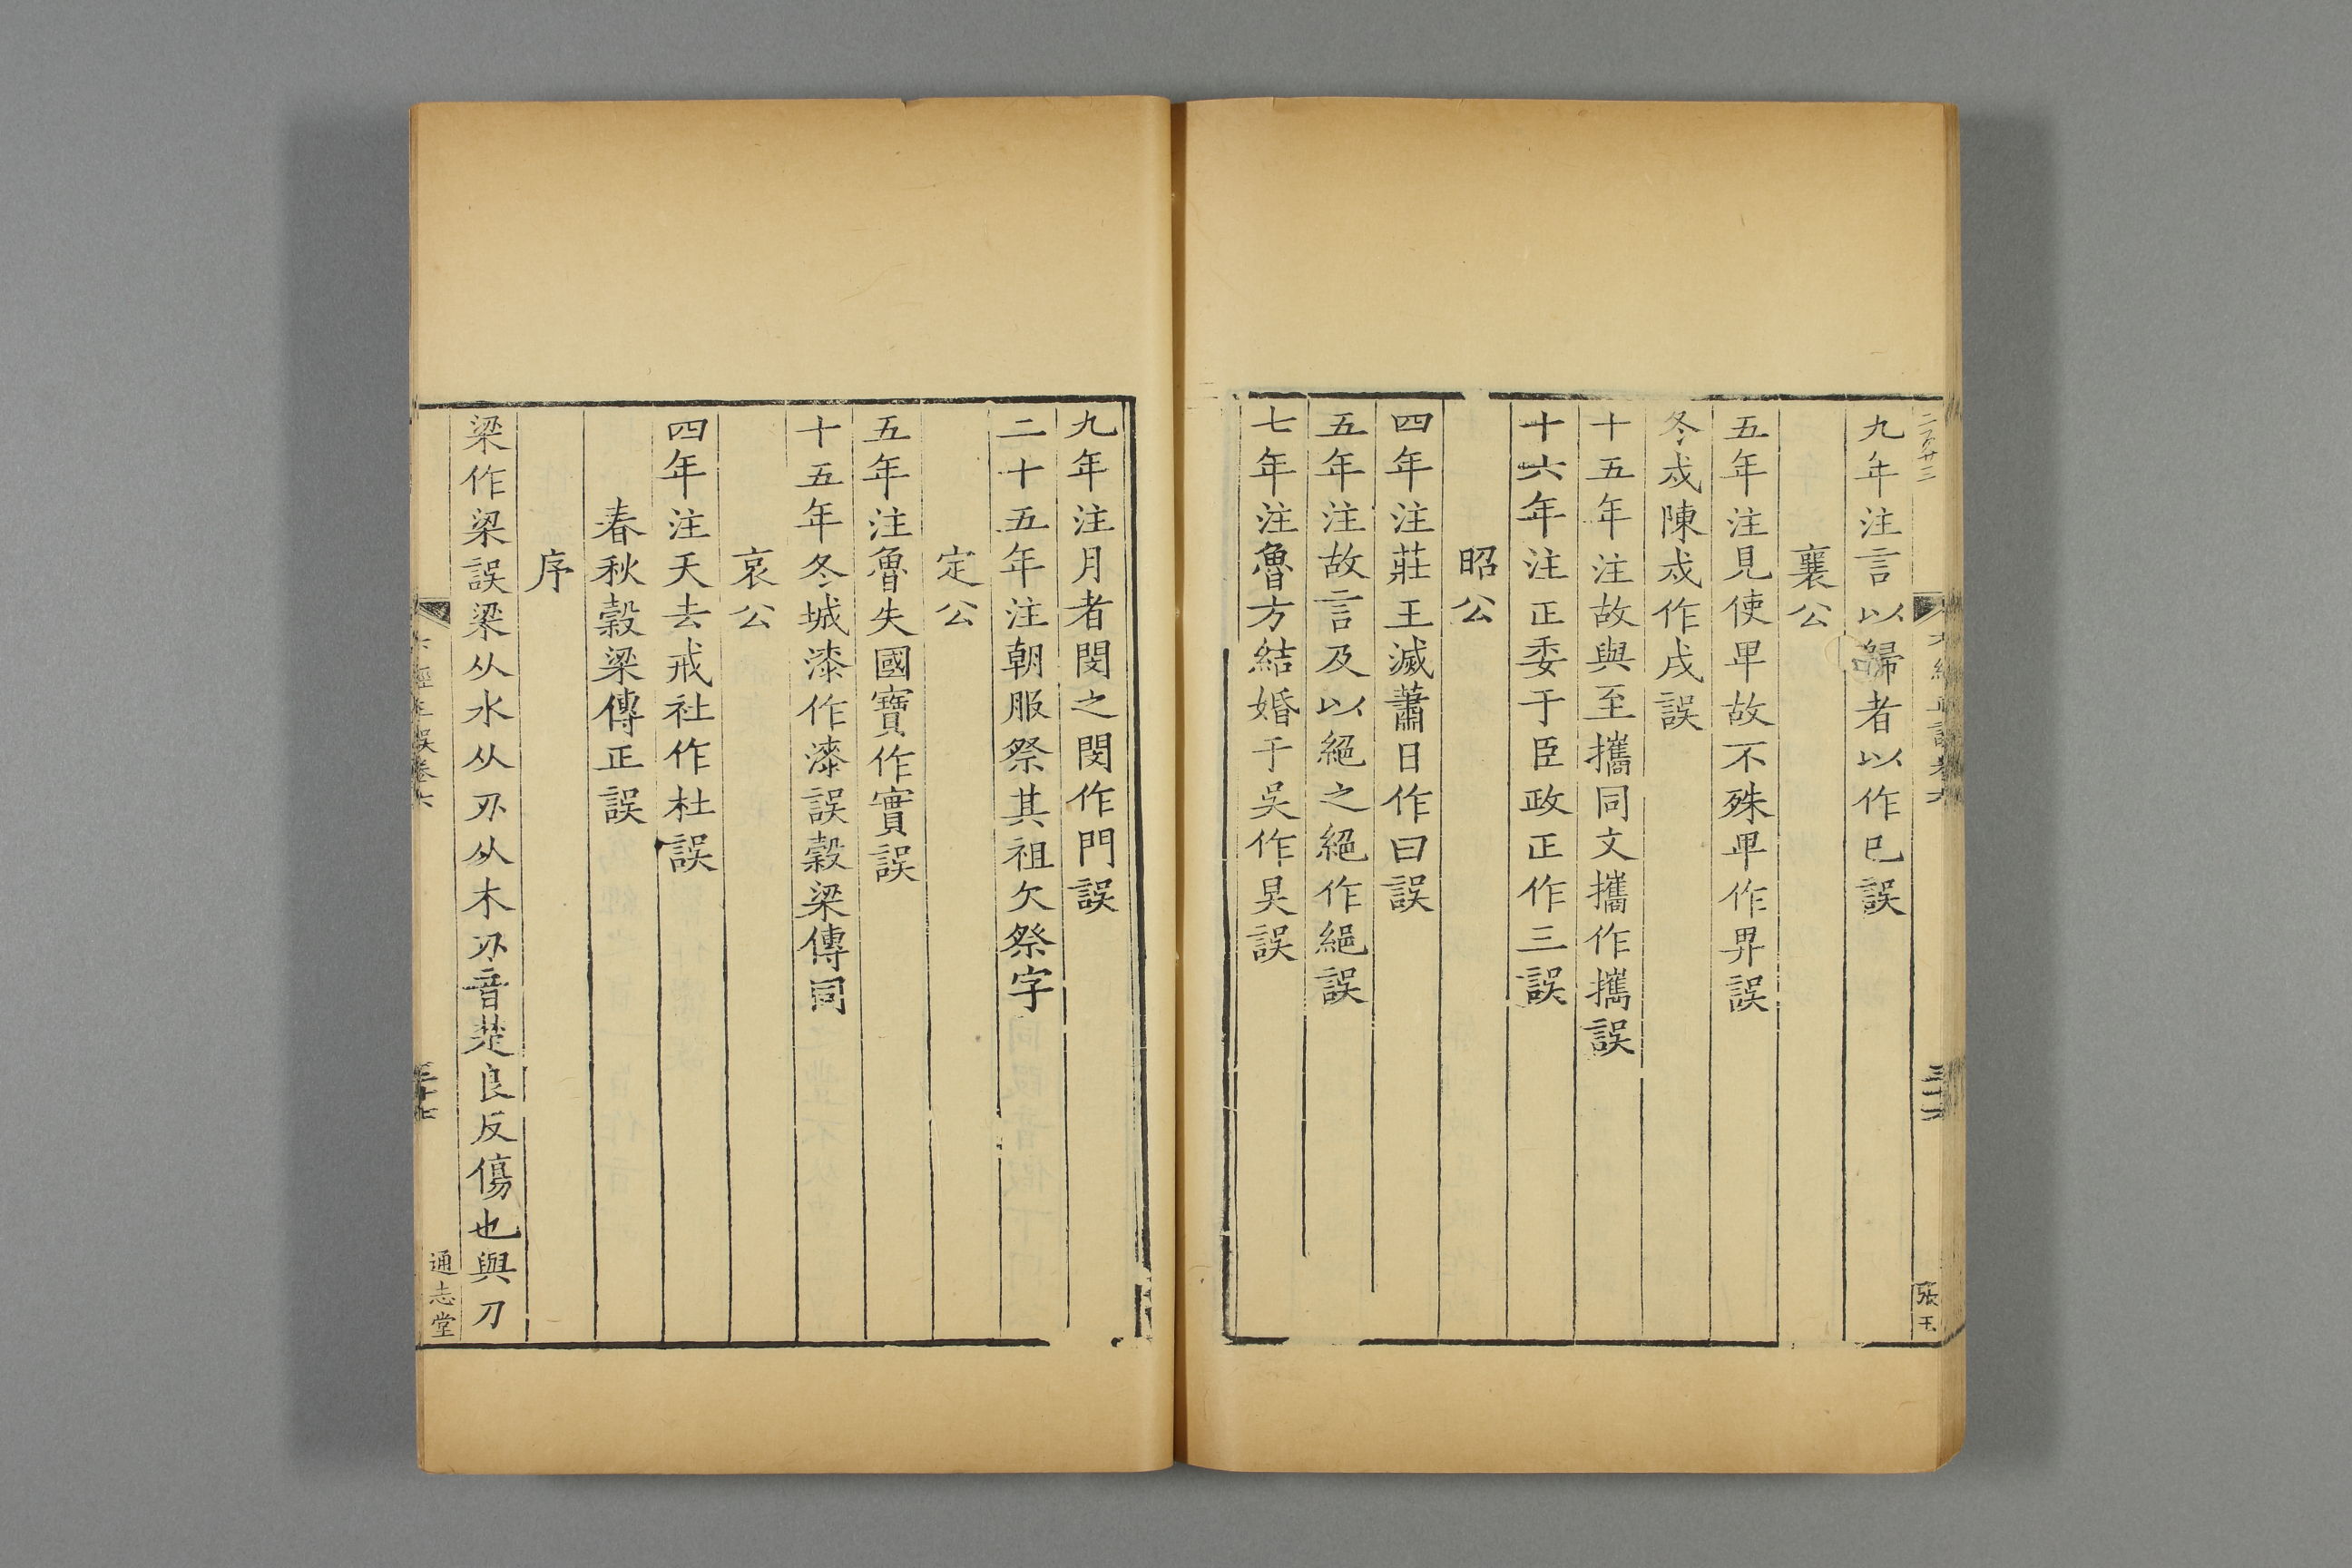 九年注言以歸者以作已誤
襄公
五年注見使卑故不殊卑作畀誤
冬戍陳戍作戌誤
十五年注故與至攜同文攜作擕誤
十六年注正委于臣政正作三誤
昭公
四年注莊王滅蕭日作曰誤
五年注故言及以絕之絕作絶誤
七年注魯方結婚于吳作昊誤
張玉
九年注月者閔之閔作門誤
二十五年注朝服祭其祖欠祭字
定公
五年注魯失國寶作實誤
十五年冬城漆作漆誤穀梁傳同
哀公
四年注天去戒社作杜誤
春秋穀梁傳正誤
序
梁作梁誤梁从水从刅从木刅音楚良反傷也與刀
六經正誤卷六
三十七
通志堂